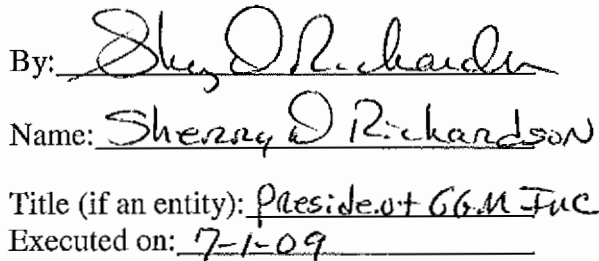 By: Sherry D Richardson
Name: Sherry D Richardson
Title (if an entity): President GGM Inc
Executed on: 7-1-09